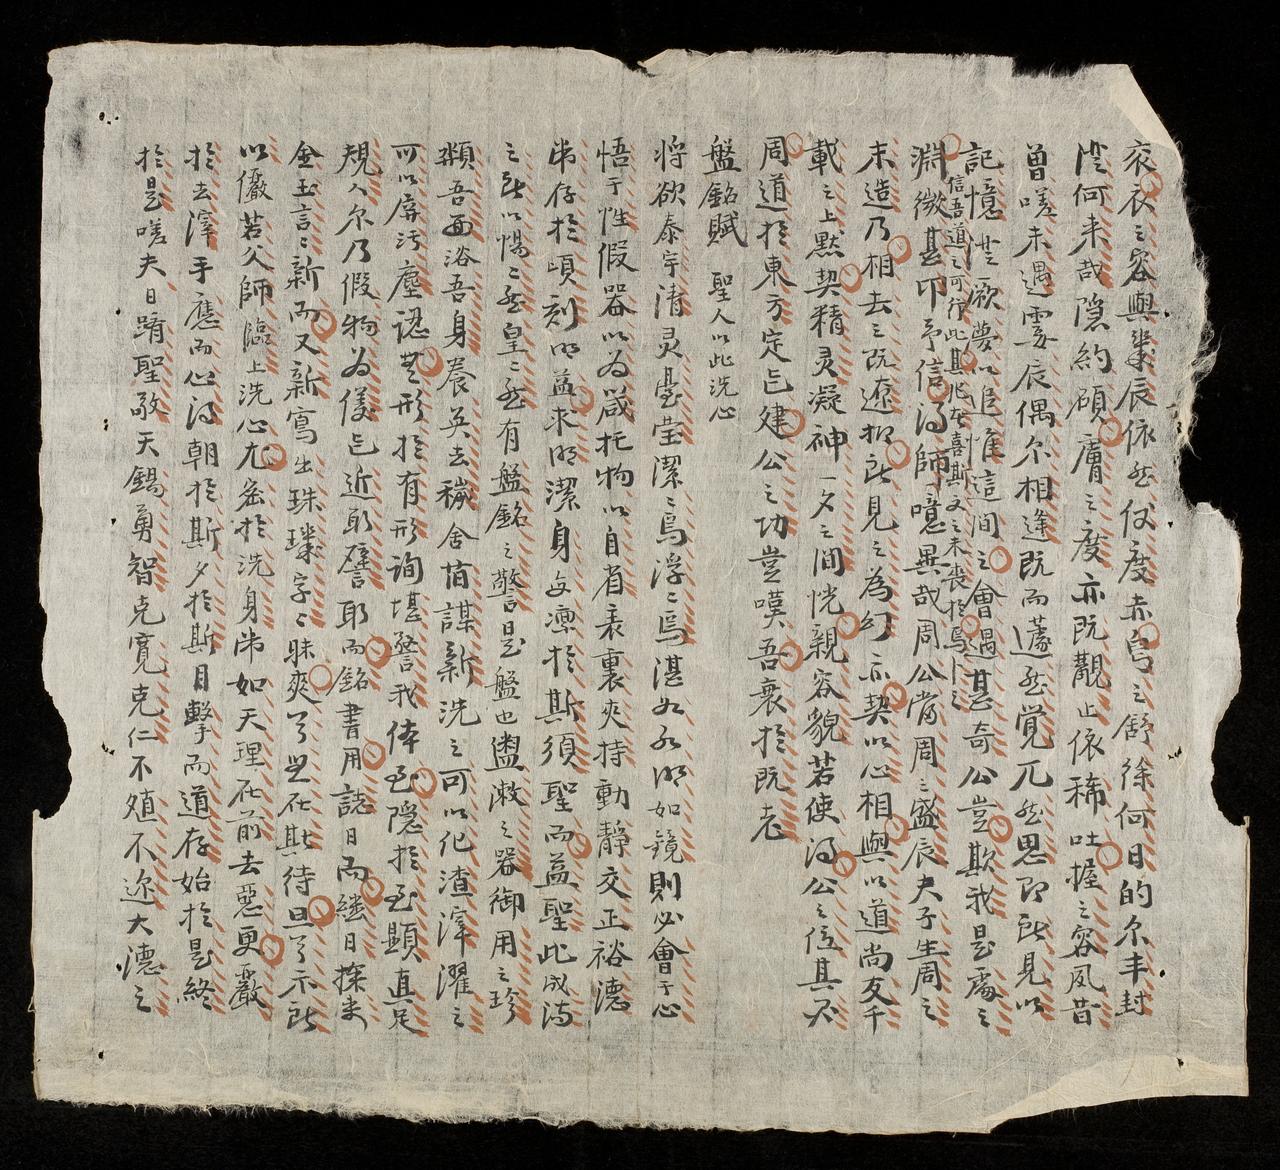 衮衣之容與幾辰依然仪度赤舄之舒徐何日的尔丰封
何来哉隐約碩膚之度亦既觀止依稀吐握之容夙昔
曾嗟未遇霎辰偶尔相逢既而蘧然覺兀然思即所見以
記憶之厥夢以追惟這间之會遇甚奇公豈欺我是處之
信吾道之可行此其兆在喜斯文之未喪於焉卜之
淵微甚叩予信得師噫異哉周公當周之盛辰夫子生周之
末造乃相去之既遼抑所見之為幻亦契以心相與以道尚友千
載之上默契精灵凝神一夕之间恍親容貌若使得公之位其不
周道於東方定㠯建公之功豈嘆吾衰於既老
盤銘賦 聖人以此洗心
将欲泰宇清灵臺莹潔潔焉浮浮焉湛如水明如鏡則必會于心
悟于性假器以为箴托物以自省表裏夾持動靜交正裕德
常存於頃刻明益求明潔身每凛於斯須聖而益聖此成湯
之所以惕惕然皇皇然有盤銘之警是盤也盥漱之器御用之珍
類吾面浴吾身養英去穢舍旧謀新洗之可以化渣滓濯之
可以屏污塵認無形於有形詢堪警我体至隐於至顯真足
規人尔乃假物为僾㠯近取譬耶而銘書用誌日而継日探未
金玉言言新而又新寫出珠璣字字昧爽兮㠯在斯待旦兮示所
以儼若父師臨上洗心尤密於洗身常如天理在前去惡更嚴
於去滓手應而心得朝於斯夕於斯目擊而道存始於是終
於是嗟夫日躋聖敬天錫勇智克寬克仁不殖不邇大德之